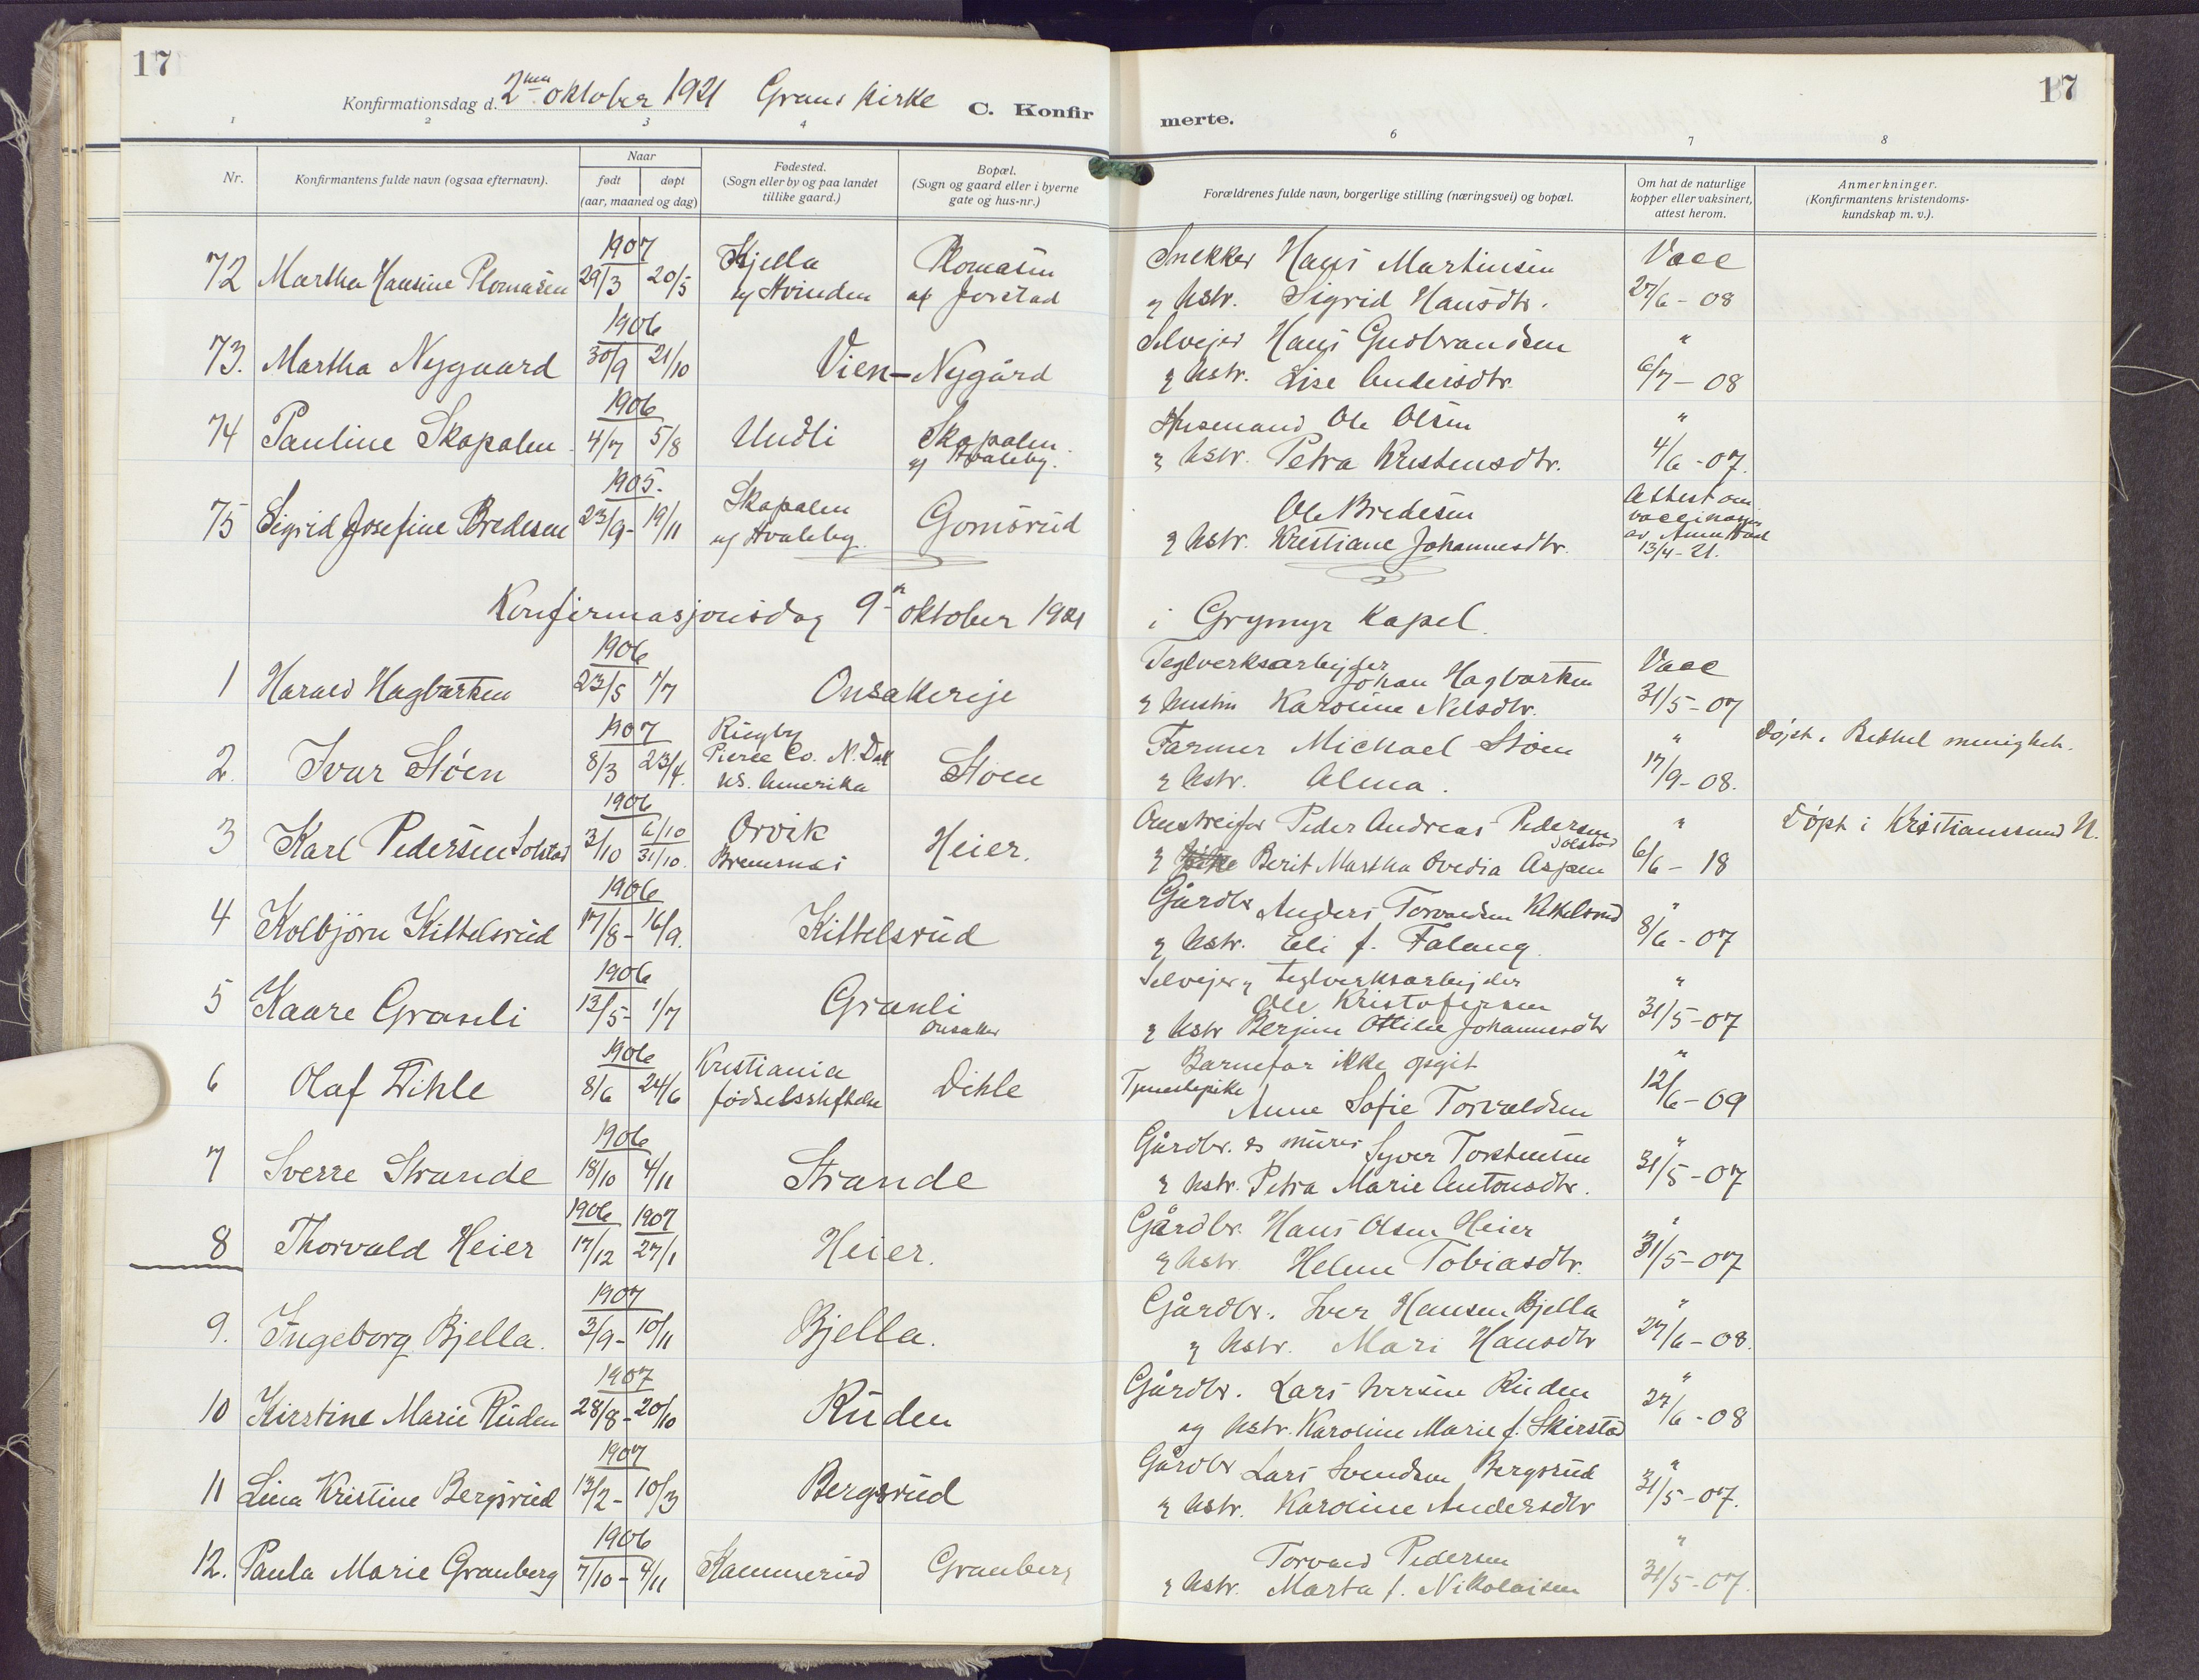 17
Konfirmationsdag d. 2den oktober 1921 Grans kirke
C. Konfir
merte.
17
1 2 3 4
6 7 8
Nr.
Konfirmantens fulde navn (ogsaa efternavn).
Naar
født døpt
(aar, maaned og dag)
Fødested.
(Sogn eller by og paa landet
tillike gaard.)
Bopæl.
(Sogn og gaard eller i byerne
gate og hus-nr.)
Forældrenes fulde navn, borgerlige stilling (næringsvei) og bopæl.
Om hat de naturlige
kopper eller vaksinert,
attest herom.
Anmerkninger.
(Konfirmantens kristendoms-
kundskap m. v.).
1907
72 Martha Hansine Plomasen 29/3 20/5
Kjella
u/ Hvinden
Plomasen
u/ Jorstad
Snekker Hans Martinsen
og hstr. Sigrid Hansdtr.
Vacc
27/6 - 08
1906
73. Martha Nygaard 30/9 21/10 Vien - Nygård
Selvejer Hans Gudbrandsen
og hstr. Lise Andersdtr.
"
6/7 - 08
1906
74 Pauline Skapalen 4/7 5/8 Undli
Skapalen
u/ Hvaleby.
Husmand Ole Olsen
og hstr. Petra Kristensdtr.
"
4/6 - 07.
1905.
75 Sigrid Josefine Bredesen 23/9 - 19/11
Skapalen
u/ Hvaleby.
Gomsrud
Ole Bredesen
og hstr. Kristiane Johannesdtr.
Attest om
13/4 - 21.
Konfirmasjonsdag 9n oktober 1921 i Grymyr Kapel.
1906
1 Harald Hagbartsen 23/5 1/7 Onsakereje
Teglverksarbejder
Johan Hagbartsen
og hustru Karoline Nelsdtr.
Vacc
31/5 - 07
1907
2. Ivar Støen 8/3 23/4.
Rugby
Pierce Co. N. Dak
US. Amerika
Støen
Farmer Michael Støen
og hstr. Alma.
"
17/9 - 08.
Døpt i Bethel menighet.
1906
3 Karl Pedersen Solstad 3/10 6/10
31/10.
Orvik
Bremsnæs
Heier.
Peder Andreas Pedersen
Solstad
og Berit Martha Ovedia Aspen
"
6/6 - 18
Døpt i Kristianssund N.
1906
4 Kolbjørn Kittelsrud 17/8 - 16/9. Kittelsrud
Gårdbr Anders Torvaldsen Kittelsrud
og hstr. Eli f. Falang
"
8/6 - 07
1906
5 Kaare Granli 13/5 - 1/7 Granli
Onsaker
Selvejer og teglverksarbejder
Ole Kristofersen
og hstr Bergine Ottilie Johannesdtr
"
31/5 - 07
1906
6 Olaf Dihle 8/6 24/6
Kristiania
fødselsstiftelse
Dihle
Barnefar ikke opgit
Tjenestepike
Anne Sofie Torvaldsen
"
12/6 - 09
1906
7 Sverre Strande 18/10 4/11 Strande
Gårdbr. og murer Syver Torstensen
og hstr. Petra Marie Antonsdtr.
"
31/5 - 07
1906 1907
8 Thorvald Heier 17/12 27/1 Heier.
Gårdbr. Hans Olsen Heier
og hstr. Helene Tobiasdtr.
"
31/5 - 07
1907
9. Ingeborg Bjella. 3/9 - 10/11 Bjella.
Gårdbr. Iver Hansen Bjella
og hstr. Mari Hansdtr
"
27/6 - 08.
1907
10 Kirstine Marie Ruden 28/8 - 20/10 Ruden
Gårdbr. Lars Iversen Ruden
og hstr. Karoline Marie f. Skirstad
"
27/6 - 08
1907
11 Lina Kristine Bergsrud 13/2 - 10/3 Bergsrud
Gårdbr Lars Svendsen Bergsrud
og hstr. Karoline Andersdtr
"
31/5 - 07.
1906
12. Paula Marie Granberg 7/10 - 4/11 Kammerud Granberg
Torvald Pedersen
og hstr. Marta f. Nikolaisen
"
31/5 - 07.